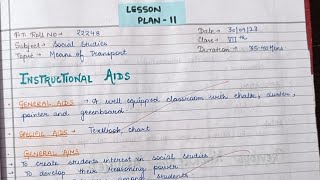 LESSON
PLAN - 11
P.T. Roll No → 22248
Date → 30/09/23
Subject → Social Studies
Class → VIIth
Topic → Means of Transport
Duration → 35-40 Mins
INSTRUCTIONAL AIDS
GENERAL AIDS → A well equipped classroom with chalk, duster,
pointer and greenboard.
SPECIFIC AIDS → Textbook, chart
GENERAL AIMS
To create students interest in social studies
To develop their reasoning power
among students